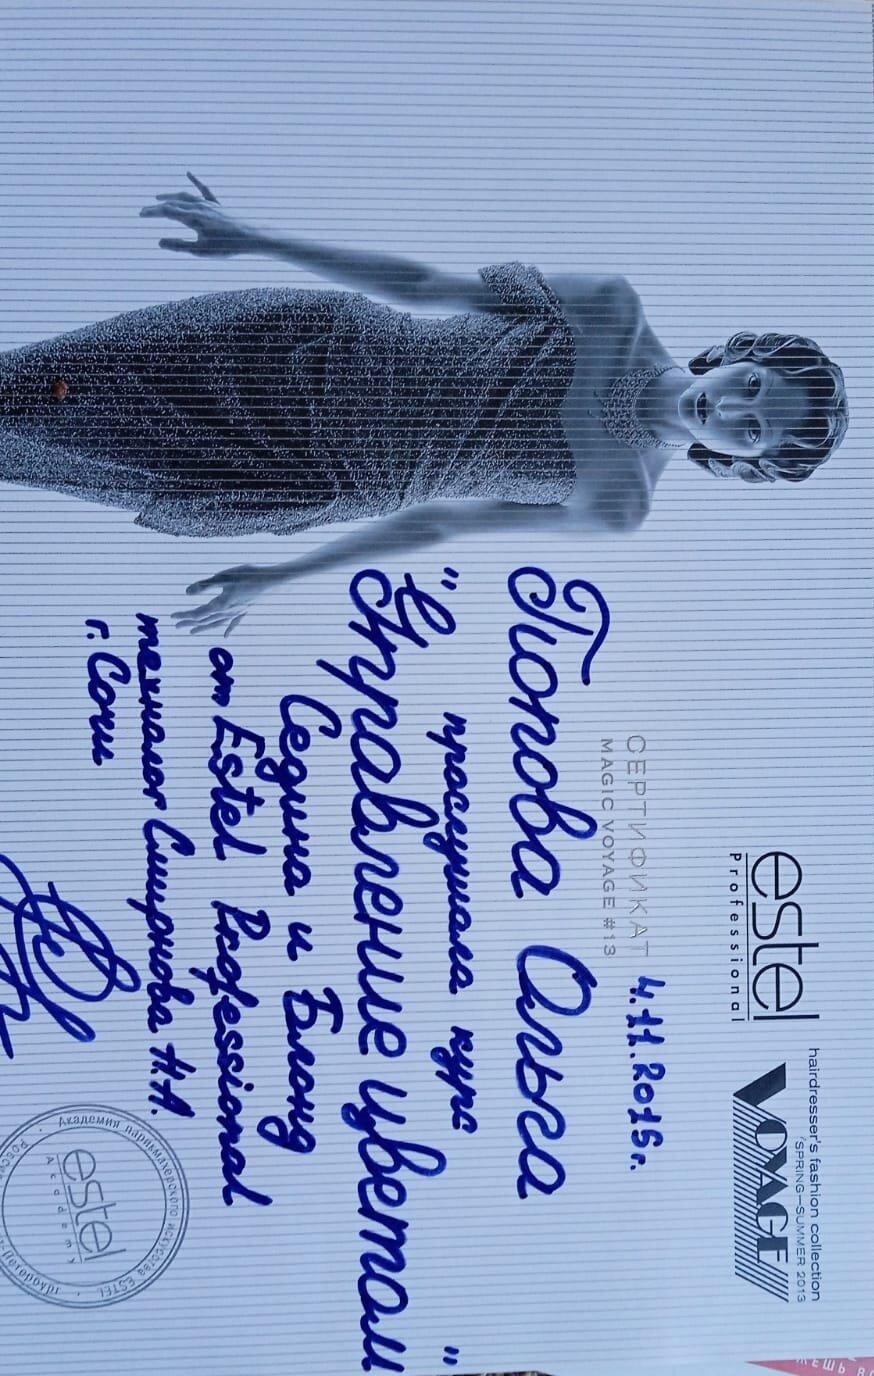 estel
Professional
hairdresser's fashion collection
'SPRING—SUMMER 2013
VOYAGE
СЕРТИФИКАТ
MAGIC VOYAGE #13
4.11.2015г.
Попова Ольга
прослушала курс
"Управление цветом"
Седина и Блонд
от Estel Professional
технолог Смирнова Н.А.
г. Сочи
Академия парикмахерского искусства ESTEL
estel
Academy